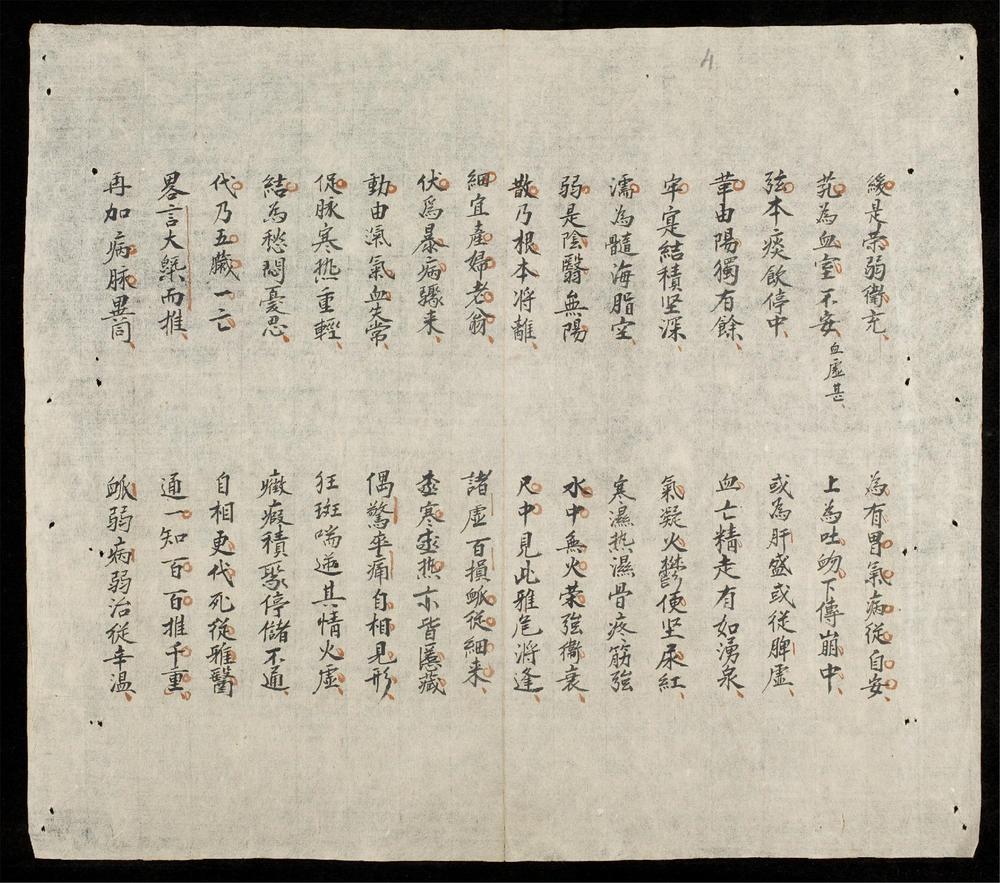 緩是荣弱衛充
為有胃氣病從自安
芤為血室不安血虛甚
上為吐衂下傳崩中
弦本痰飲停中
或為肝盛或従脾虚
革由陽獨有餘
血亡精走有如湧泉
牢寔結積坚深
氣凝火欝便坚尿紅
濡為髓海脂空
寒濕热濕骨疼筋強
弱是陰翳無陽
水中無火荣強衛衰
散乃根本将離
尺中見此雅危将逢
細宜產婦老翁
諸虚百損脈従細来
伏爲暴病驟来
寒热亦皆慝藏
動由氣血失常
偶驚卒痛自相見形
促脉寒热重輕
狂斑喘逆其情火虚
結為愁悶憂思
癥瘕積聚停儲不通
代乃五臟一亡
自相更代死従雅醫
畧言大槩而推
通一知百百推千重
再加病脉異同
脈弱病弱治従辛温